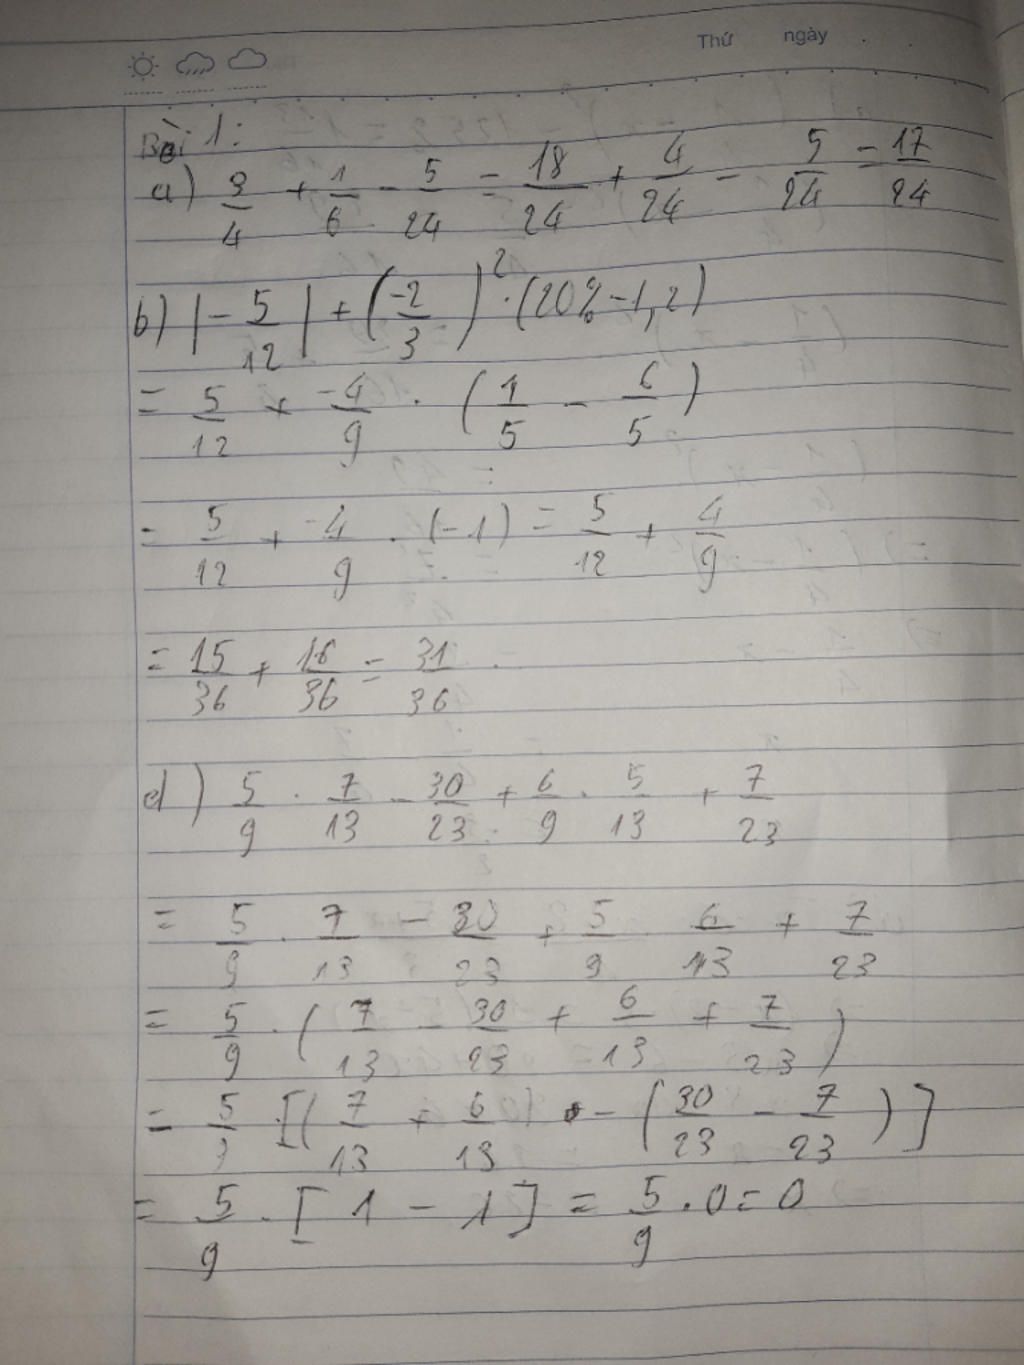 Thứ ngày
Bài 1:
a) 3/4 + 1/6 - 5/24 = 18/24 + 4/24 - 5/24 = 17/24
b) |-5/12| + (-2/3)² . (20% - 1,2)
= 5/12 + -4/9 . (1/5 - 6/5)
= 5/12 + -4/9 . (-1) = 5/12 + 4/9
= 15/36 + 16/36 = 31/36 .
d) 5/9 . 7/13 - 30/23 + 6/9 . 5/13 + 7/23
= 5/9 . 7/13 - 30/23 + 5/9 . 6/13 + 7/23
= 5/9 . (7/13 - 30/23 + 6/13 + 7/23)
= 5/9 . [(7/13 + 6/13) - (30/23 - 7/23)]
= 5/9 . [1 - 1] = 5/9 . 0 = 0